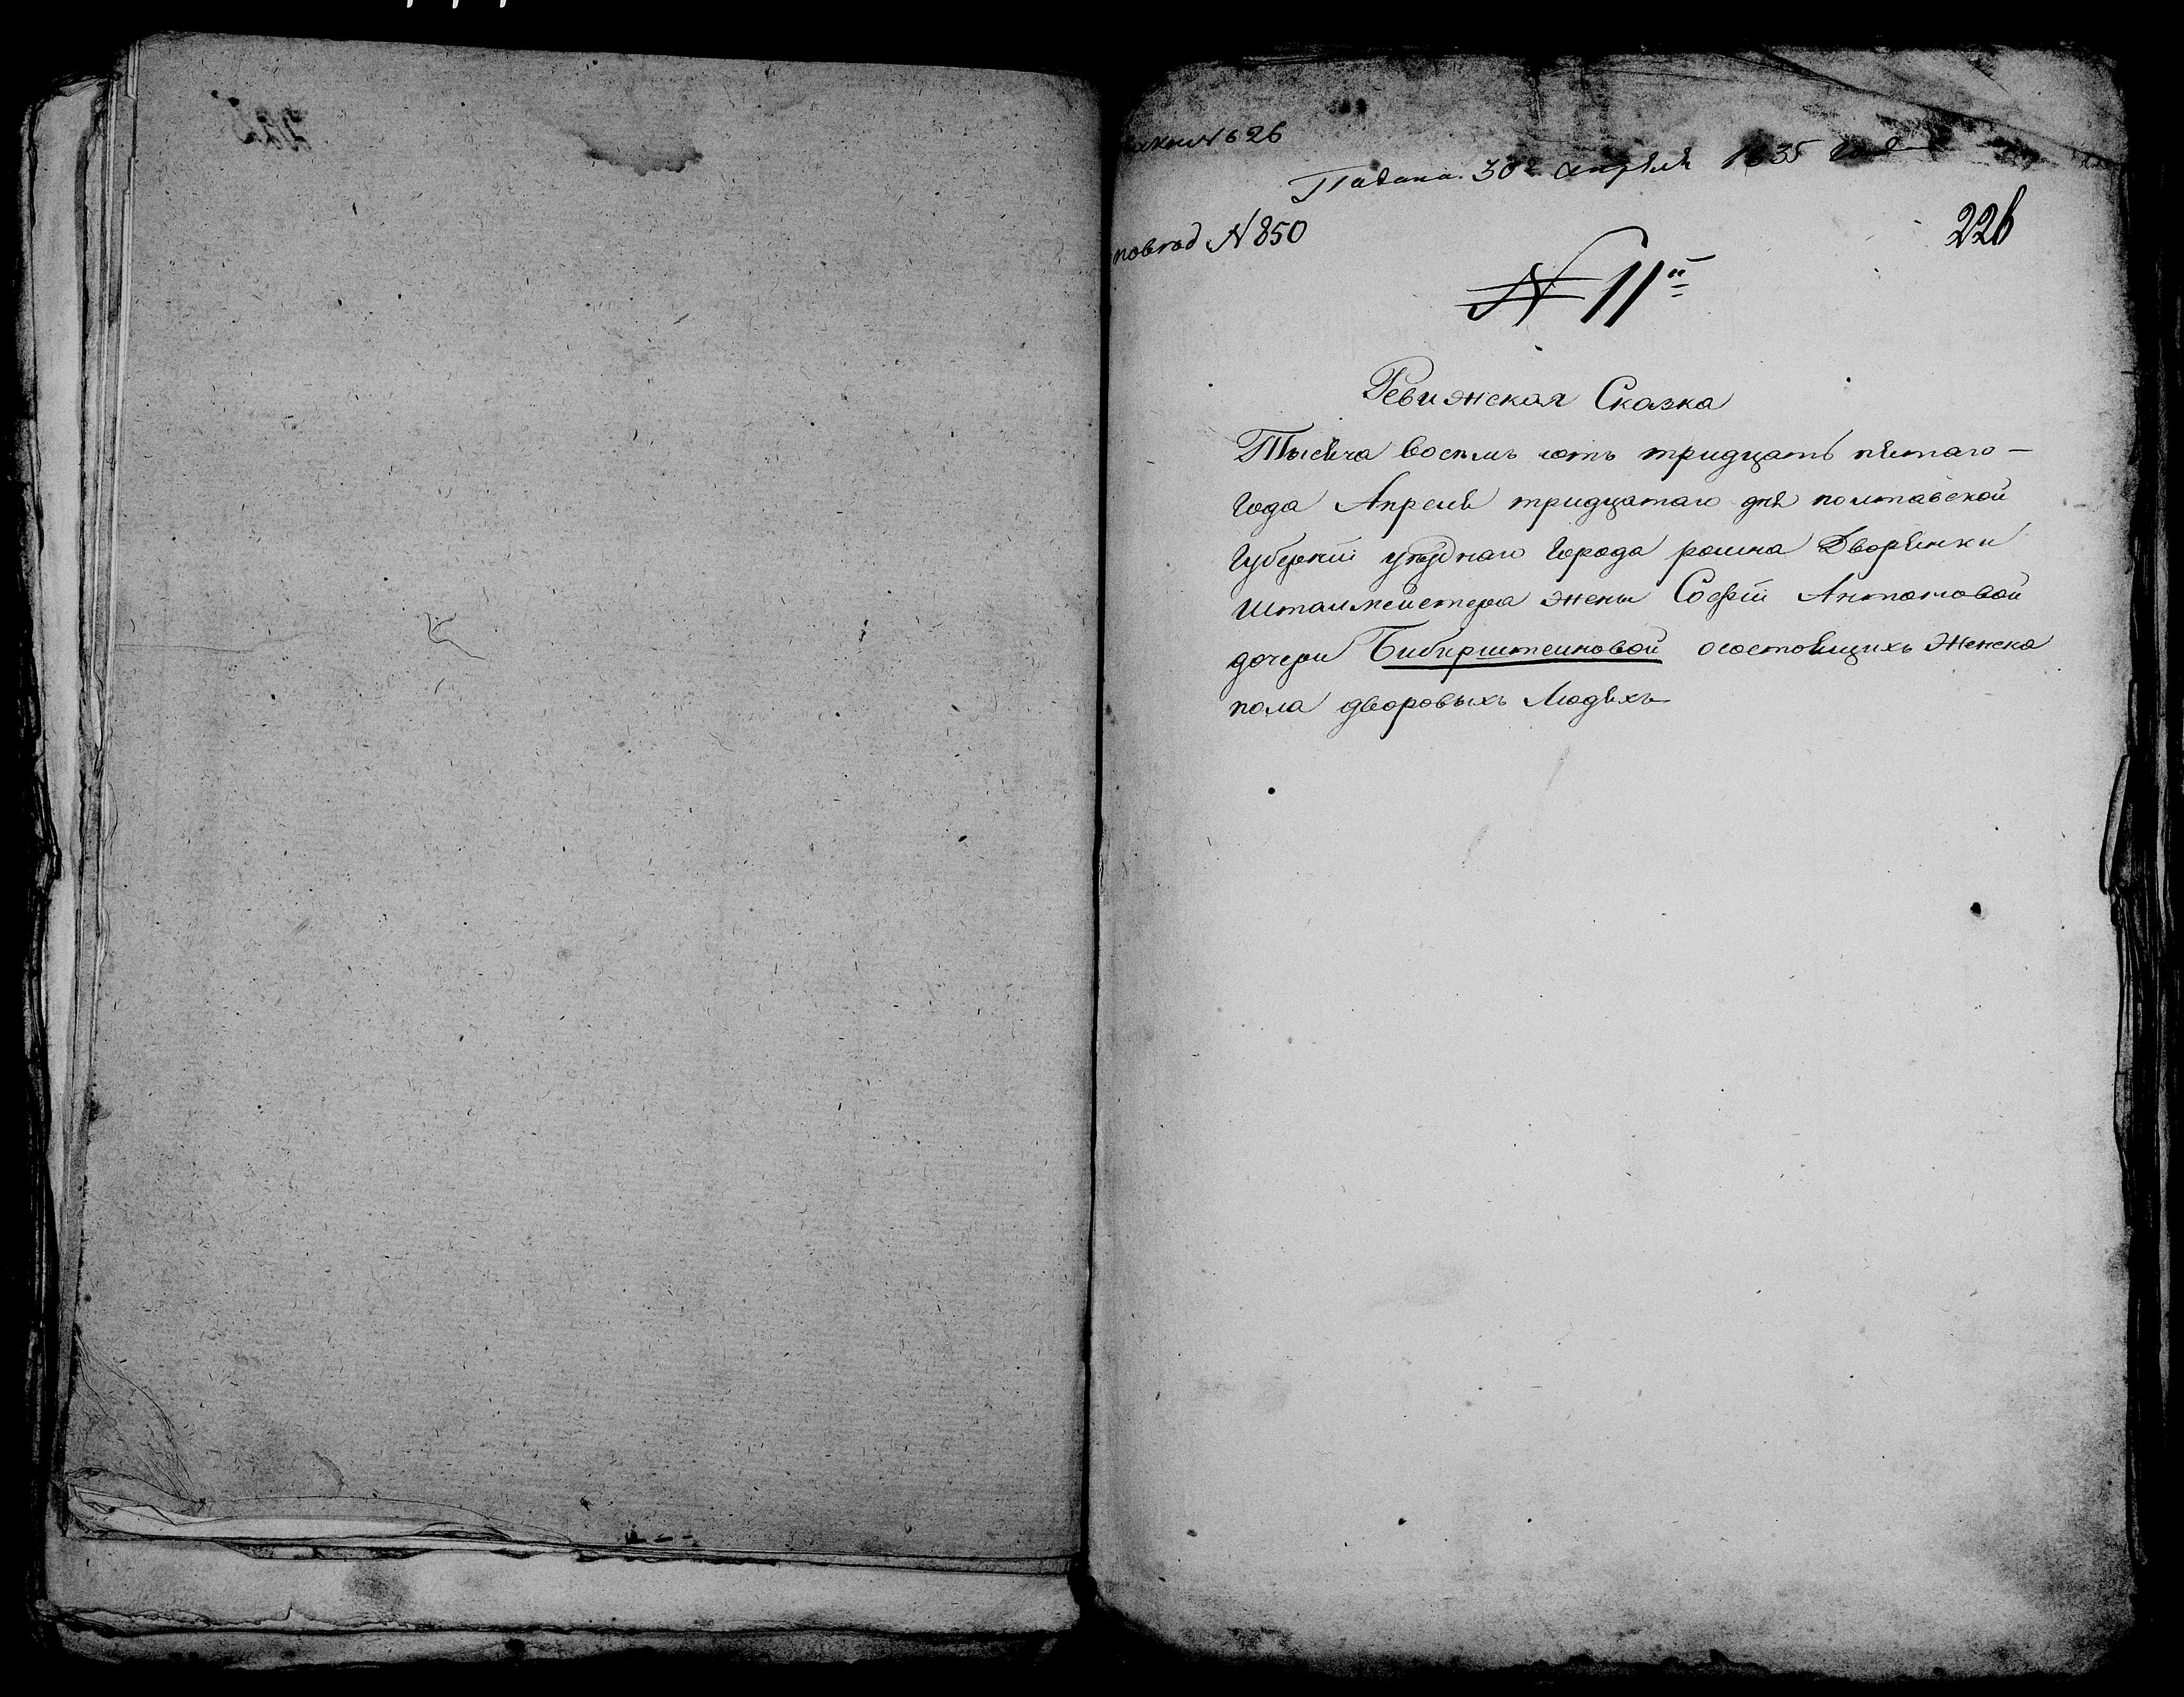 № 626
Подана 30го апреля 1835 года
226
повгод № 850
№ 11й
Ревижская Сказка
Тысяча восемь сотъ тридцать пятаго —
Года Апреля тридцатаго дня полтавской
Губернїи уезднаго Города ромна Дворянки
Шталмейстера жены Софїи Антоновой
дочери Бибирштеиновой осостоящихъ Женска
пола дворовыхъ Людяхъ